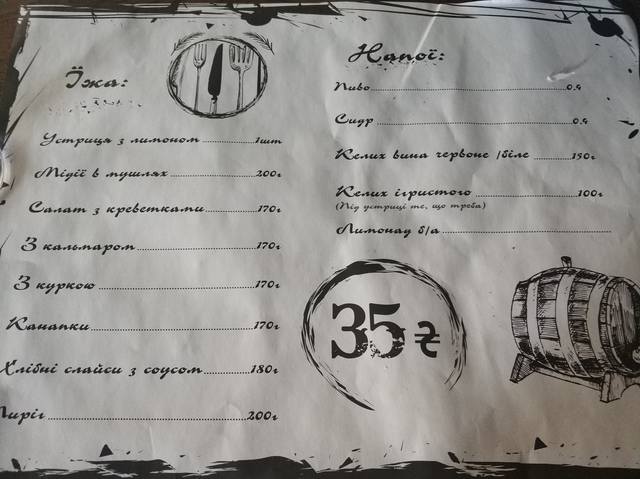 Їжа:
Устриця з лимоном 1шт
Мідії в мушлях 200г
Салат з креветками 170г
З кальмаром 170г
З куркою 170г
Канапки 170г
Хлібні слайси з соусом 180г
Пиріг 200г
Напої:
Пиво 0.4
Сидр 0.4
Келих вина червоне /біле 150г
Келих ігристого 100г
(Під устриці те, що треба)
Лимонад б/а
35 ₴